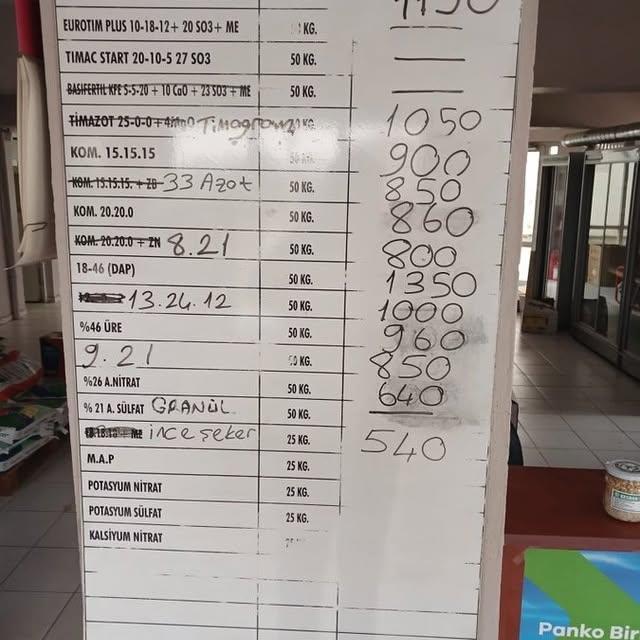 1150
EUROTIM PLUS 10-18-12+ 20 SO3+ ME KG.
TIMAC START 20-10-5 27 SO3 50 KG.
BASIFERTIL KFE 5-5-20 + 10 CaO + 23 SO3 + ME 50 KG.
TİMAZOT 25-0-0 + 4MgO Timogranz KG. 1050
KOM. 15.15.15 50 KG. 900
KOM. 15.15.15. + ZB 33 Azot 50 KG. 850
KOM. 20.20.0 50 KG. 860
KOM. 20.20.0 + ZN 8.21 50 KG. 800
18-46 (DAP) 50 KG. 1350
13.24.12 50 KG. 1000
%46 ÜRE 50 KG. 960
9.21 50 KG. 850
%26 A.NİTRAT 50 KG. 640
% 21 A. SÜLFAT GRANÜL 50 KG.
ince şeker 25 KG. 540
M.A.P 25 KG.
POTASYUM NİTRAT 25 KG.
POTASYUM SÜLFAT 25 KG.
KALSİYUM NİTRAT
Panko Bir